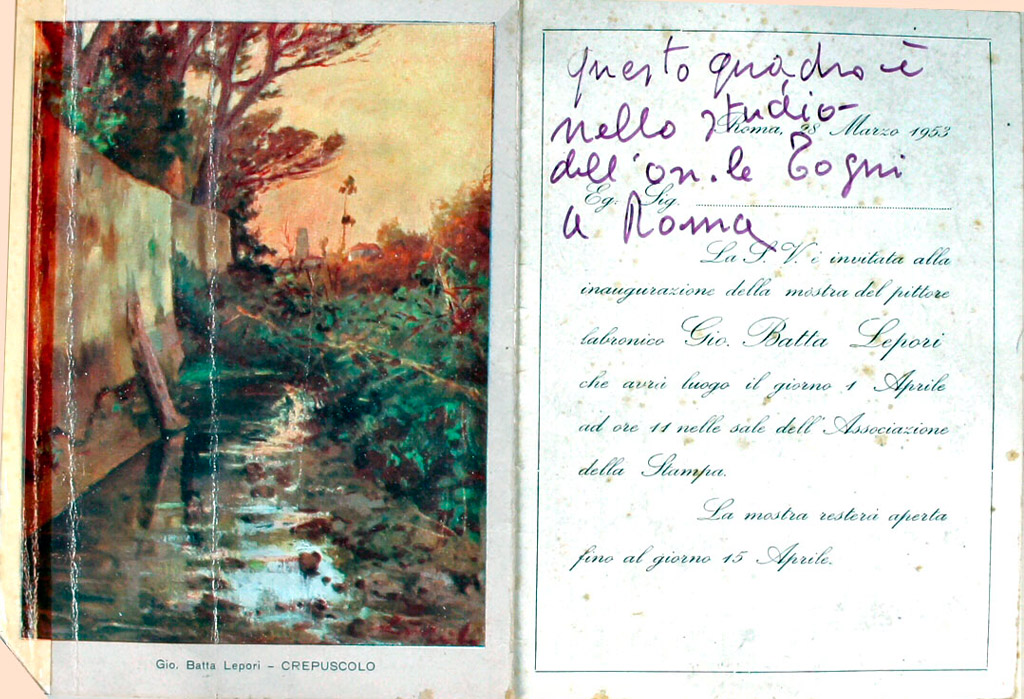 Gio. Batta Lepori - CREPUSCOLO
questo quadro è
nello studio
Roma, 28 Marzo 1953
dell'on.le Togni
Eg. Sig.
a Roma
La S. V. è invitata alla
inaugurazione della mostra del pittore
labronico Gio. Batta Lepori
che avrà luogo il giorno 1 Aprile
ad ore 11 nelle sale dell'Associazione
della Stampa.
La mostra resterà aperta
fino al giorno 15 Aprile.